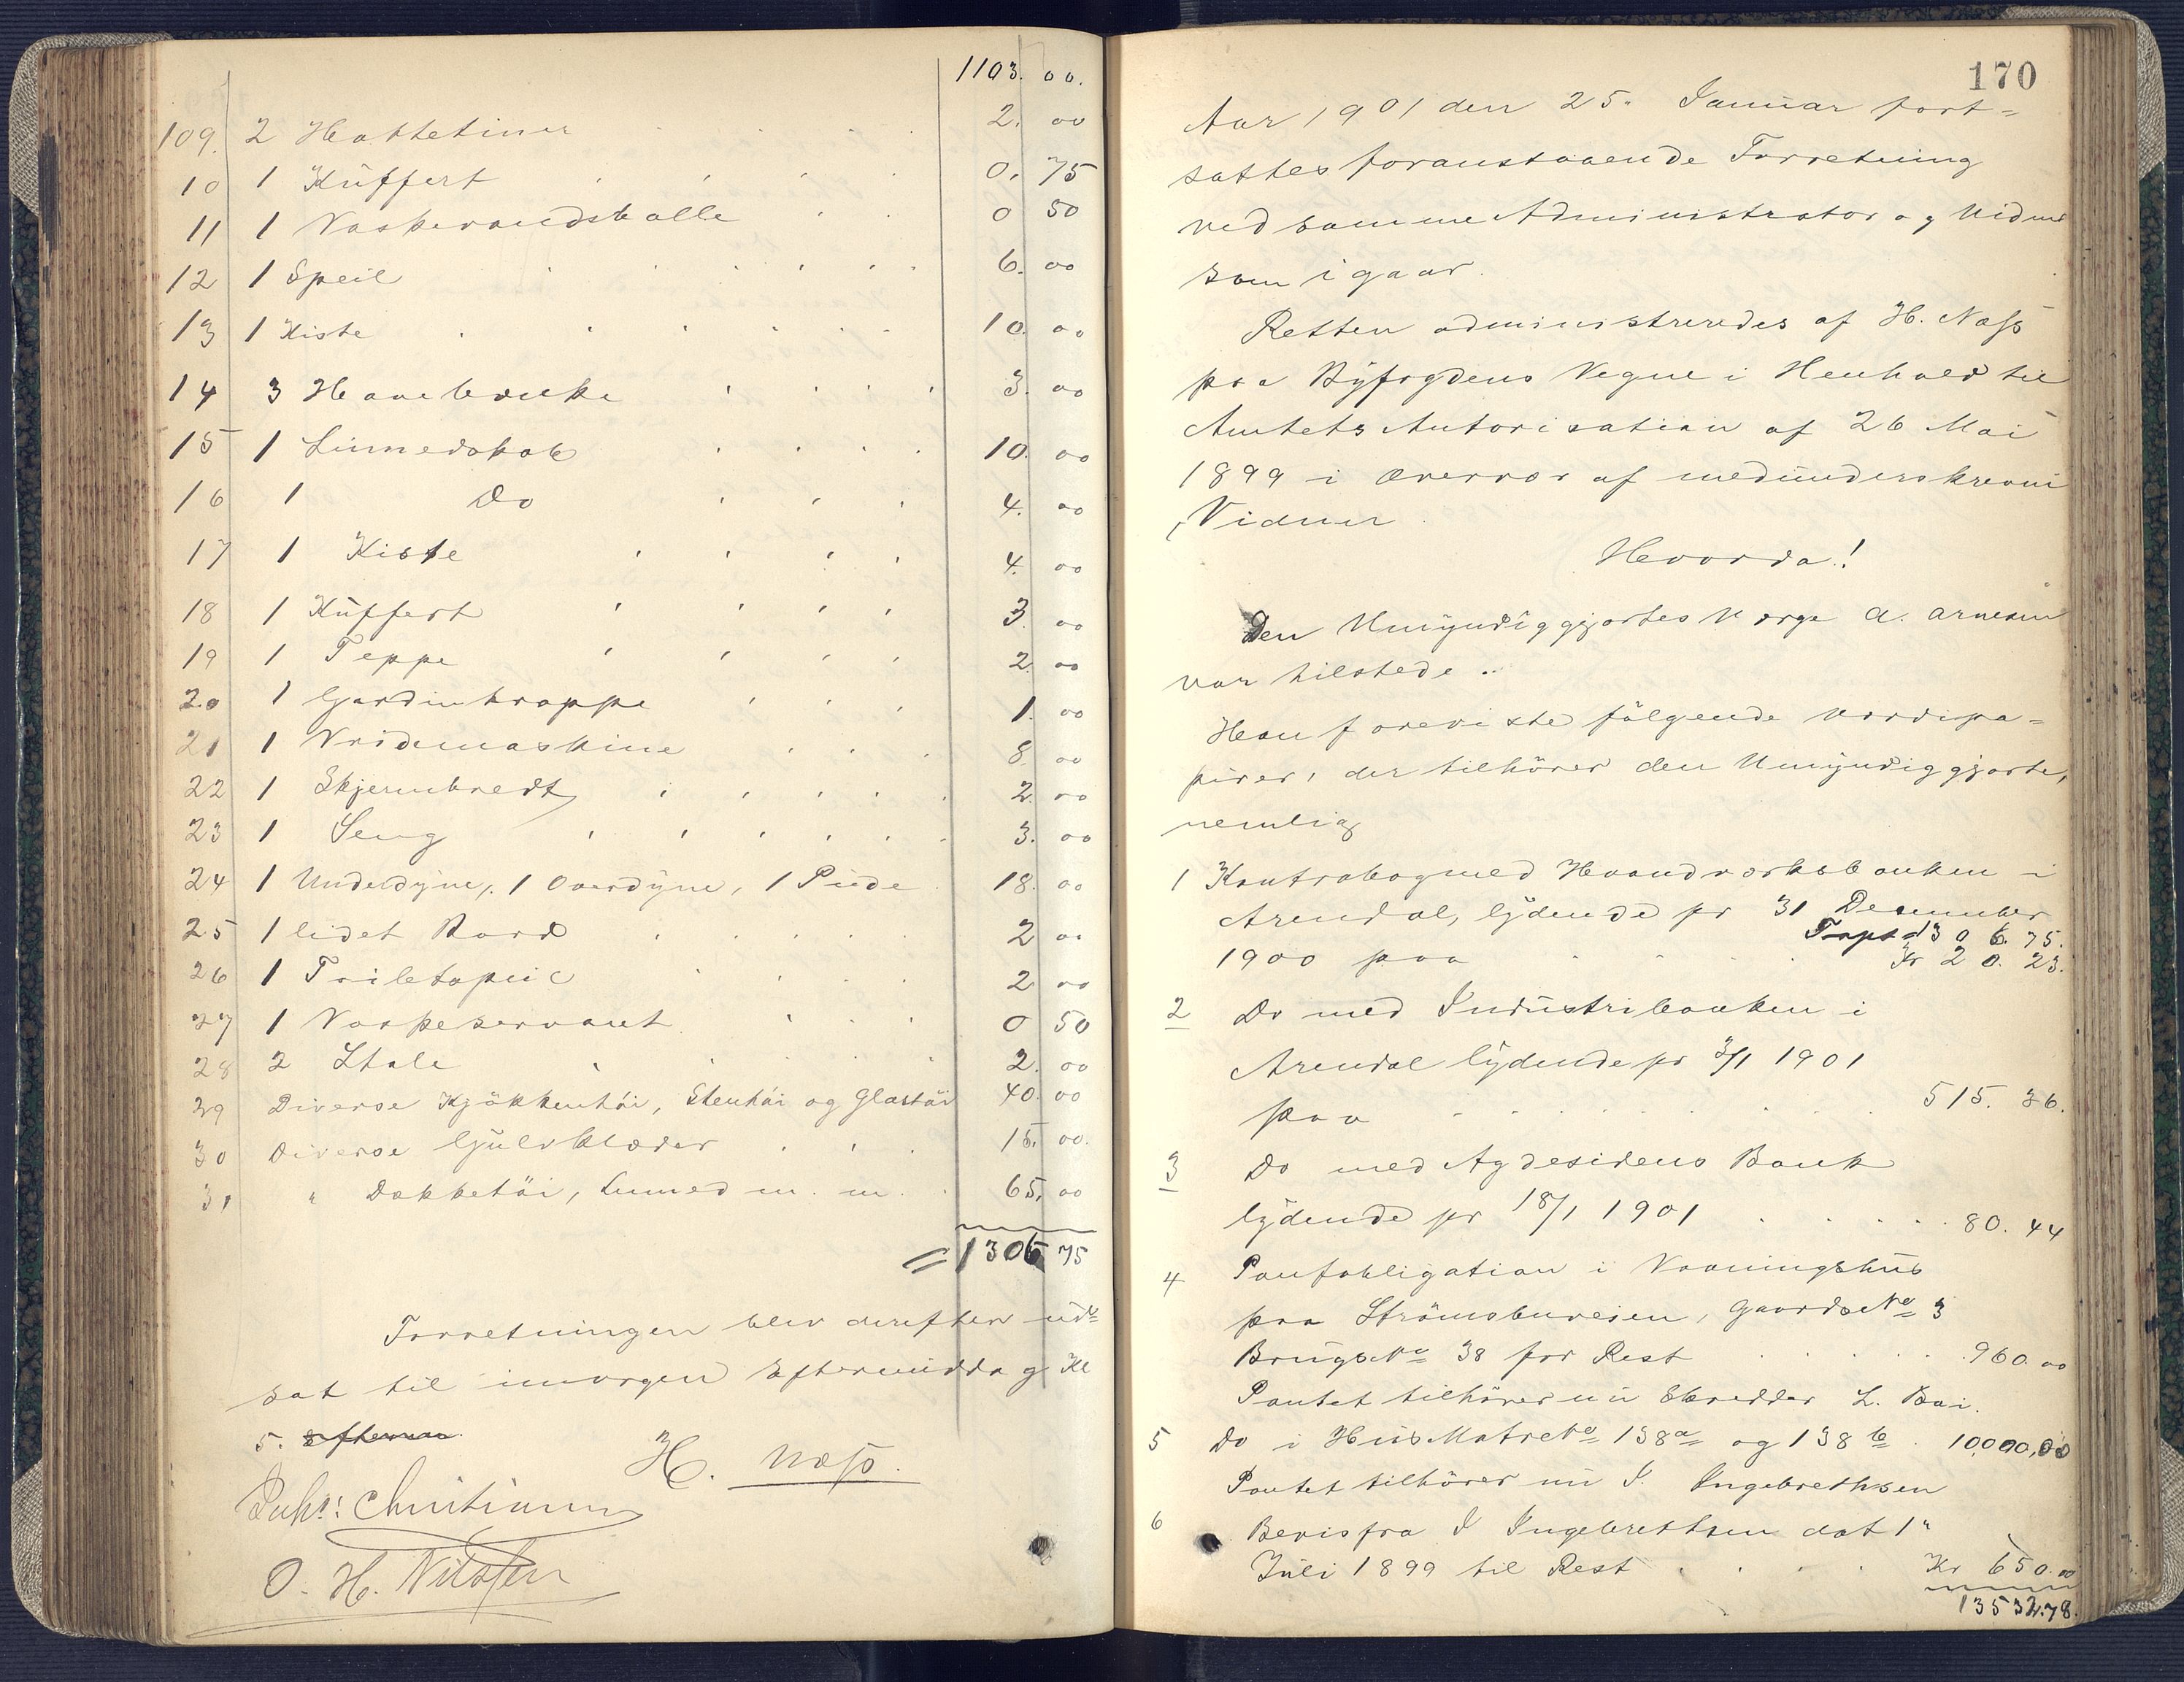 1103. 00.
109. 2 Hattetiner 2. 00
10 1 Kuffert 0. 75
11 1 Vaskevandsballe 0 50
12 1 Speil 6. 00
13 1 Kiste 10. 00
14 3 Havebænke 3. 00
15 1 Linnedskab 10. 00
16 1 Do 4. 00
17 1 Kiste 4. 00
18 1 Kuffert 3. 00
19 1 Teppe 2. 00
20 1 Gardintrappe 1. 00
21 1 Vridemaskine 8. 00
22 1 Skjermbredt 2. 00
23 1 Seng 3. 00
24 1 Underdyne, 1 Overdyne, 1 Pude 18. 00
25 1 lidet Bord 2 00
26 1 Toiletspeil 2 00
27 1 Vaskeservant 0 50
28 2 Stole 2. 00
29 Diverse Kjøkkentøi, Stentøi og Glastøi 40. 00
30 Diverse Gulvklæder 15. 00.
31 " Dækketøi, Linned m. m. 65. 00
= 1306 75
Forretningen blev derefter ud=
sat til imorgen Eftermiddag Kl
5. Efterm
H. Næss.
Joh: Christiansen
O. H. Nilssen
170
Aar 1901 den 25. Januar fort=
sattes foranstaaende Forretning
ved samme Administrator og Vidner
som igaar.
Retten administreredes af H. Næss
paa Byfogdens Vegne i Henhold til
Amtets Autorisation af 26 Mai
1899 i Overvær af medunderskrevne
Vidner
Hvorda!
Den Umyndiggjortes Værge A. Arnesen
var tilstede.
Han foreviste følgende Værdipa=
pirer, der tilhører den Umyndiggjorte,
nemlig
1 Kontrabog med Haandværksbanken i
Arendal, lydende pr 31 December
Trpt 1306. 75.
1900 paa Kr 20. 23.
2 Do med Industribanken i
Arendal lydende pr 3/1 1901
paa 515. 36.
3 Do med Agdesidens Bank
lydende pr 18/1 1901 80. 44
4 Pantobligation i Vaaningshus
paa Strømsbuveien, Gaards No 3
Brugs No 38 for Rest 960. 00
Pantet tilhører nu Skredder L. Boi.
5 Do i Hus Matr No 138a og 138b 10000,00
Pantet tilhører nu I. Ingebrethsen
6 Bevis fra I Ingebrethsen dat 1"
Juli 1899 til Rest Kr 650. 00
13532.78.